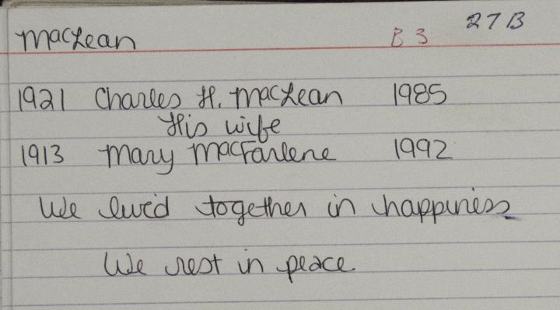 MacLean B 3 27 B
1921 Charles H. MacLean 1985
His wife
1913 Mary MacFarlene 1992
We lived together in happiness
We rest in peace.